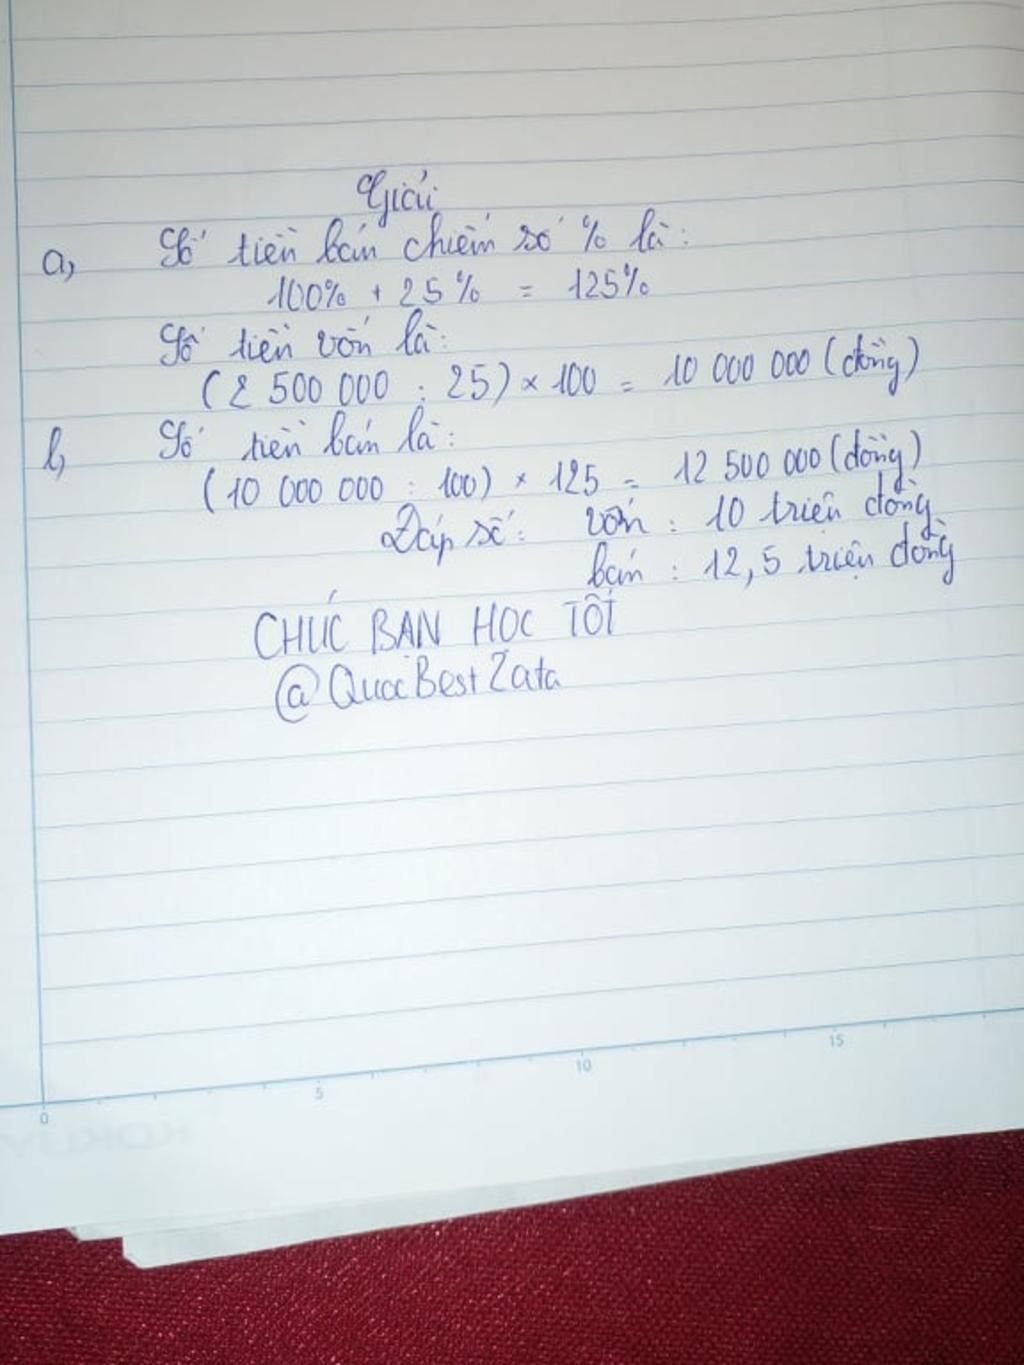 Giải
a, Số tiền bán chiếm số % là:
100% + 25% = 125%
Số tiền vốn là:
(2 500 000 : 25) × 100 = 10 000 000 (đồng)
b, Số tiền bán là:
(10 000 000 : 100) × 125 = 12 500 000 (đồng)
Đáp số: vốn : 10 triệu đồng
bán : 12,5 triệu đồng
CHÚC BẠN HỌC TỐT
0 5 10 15
KOKUYO